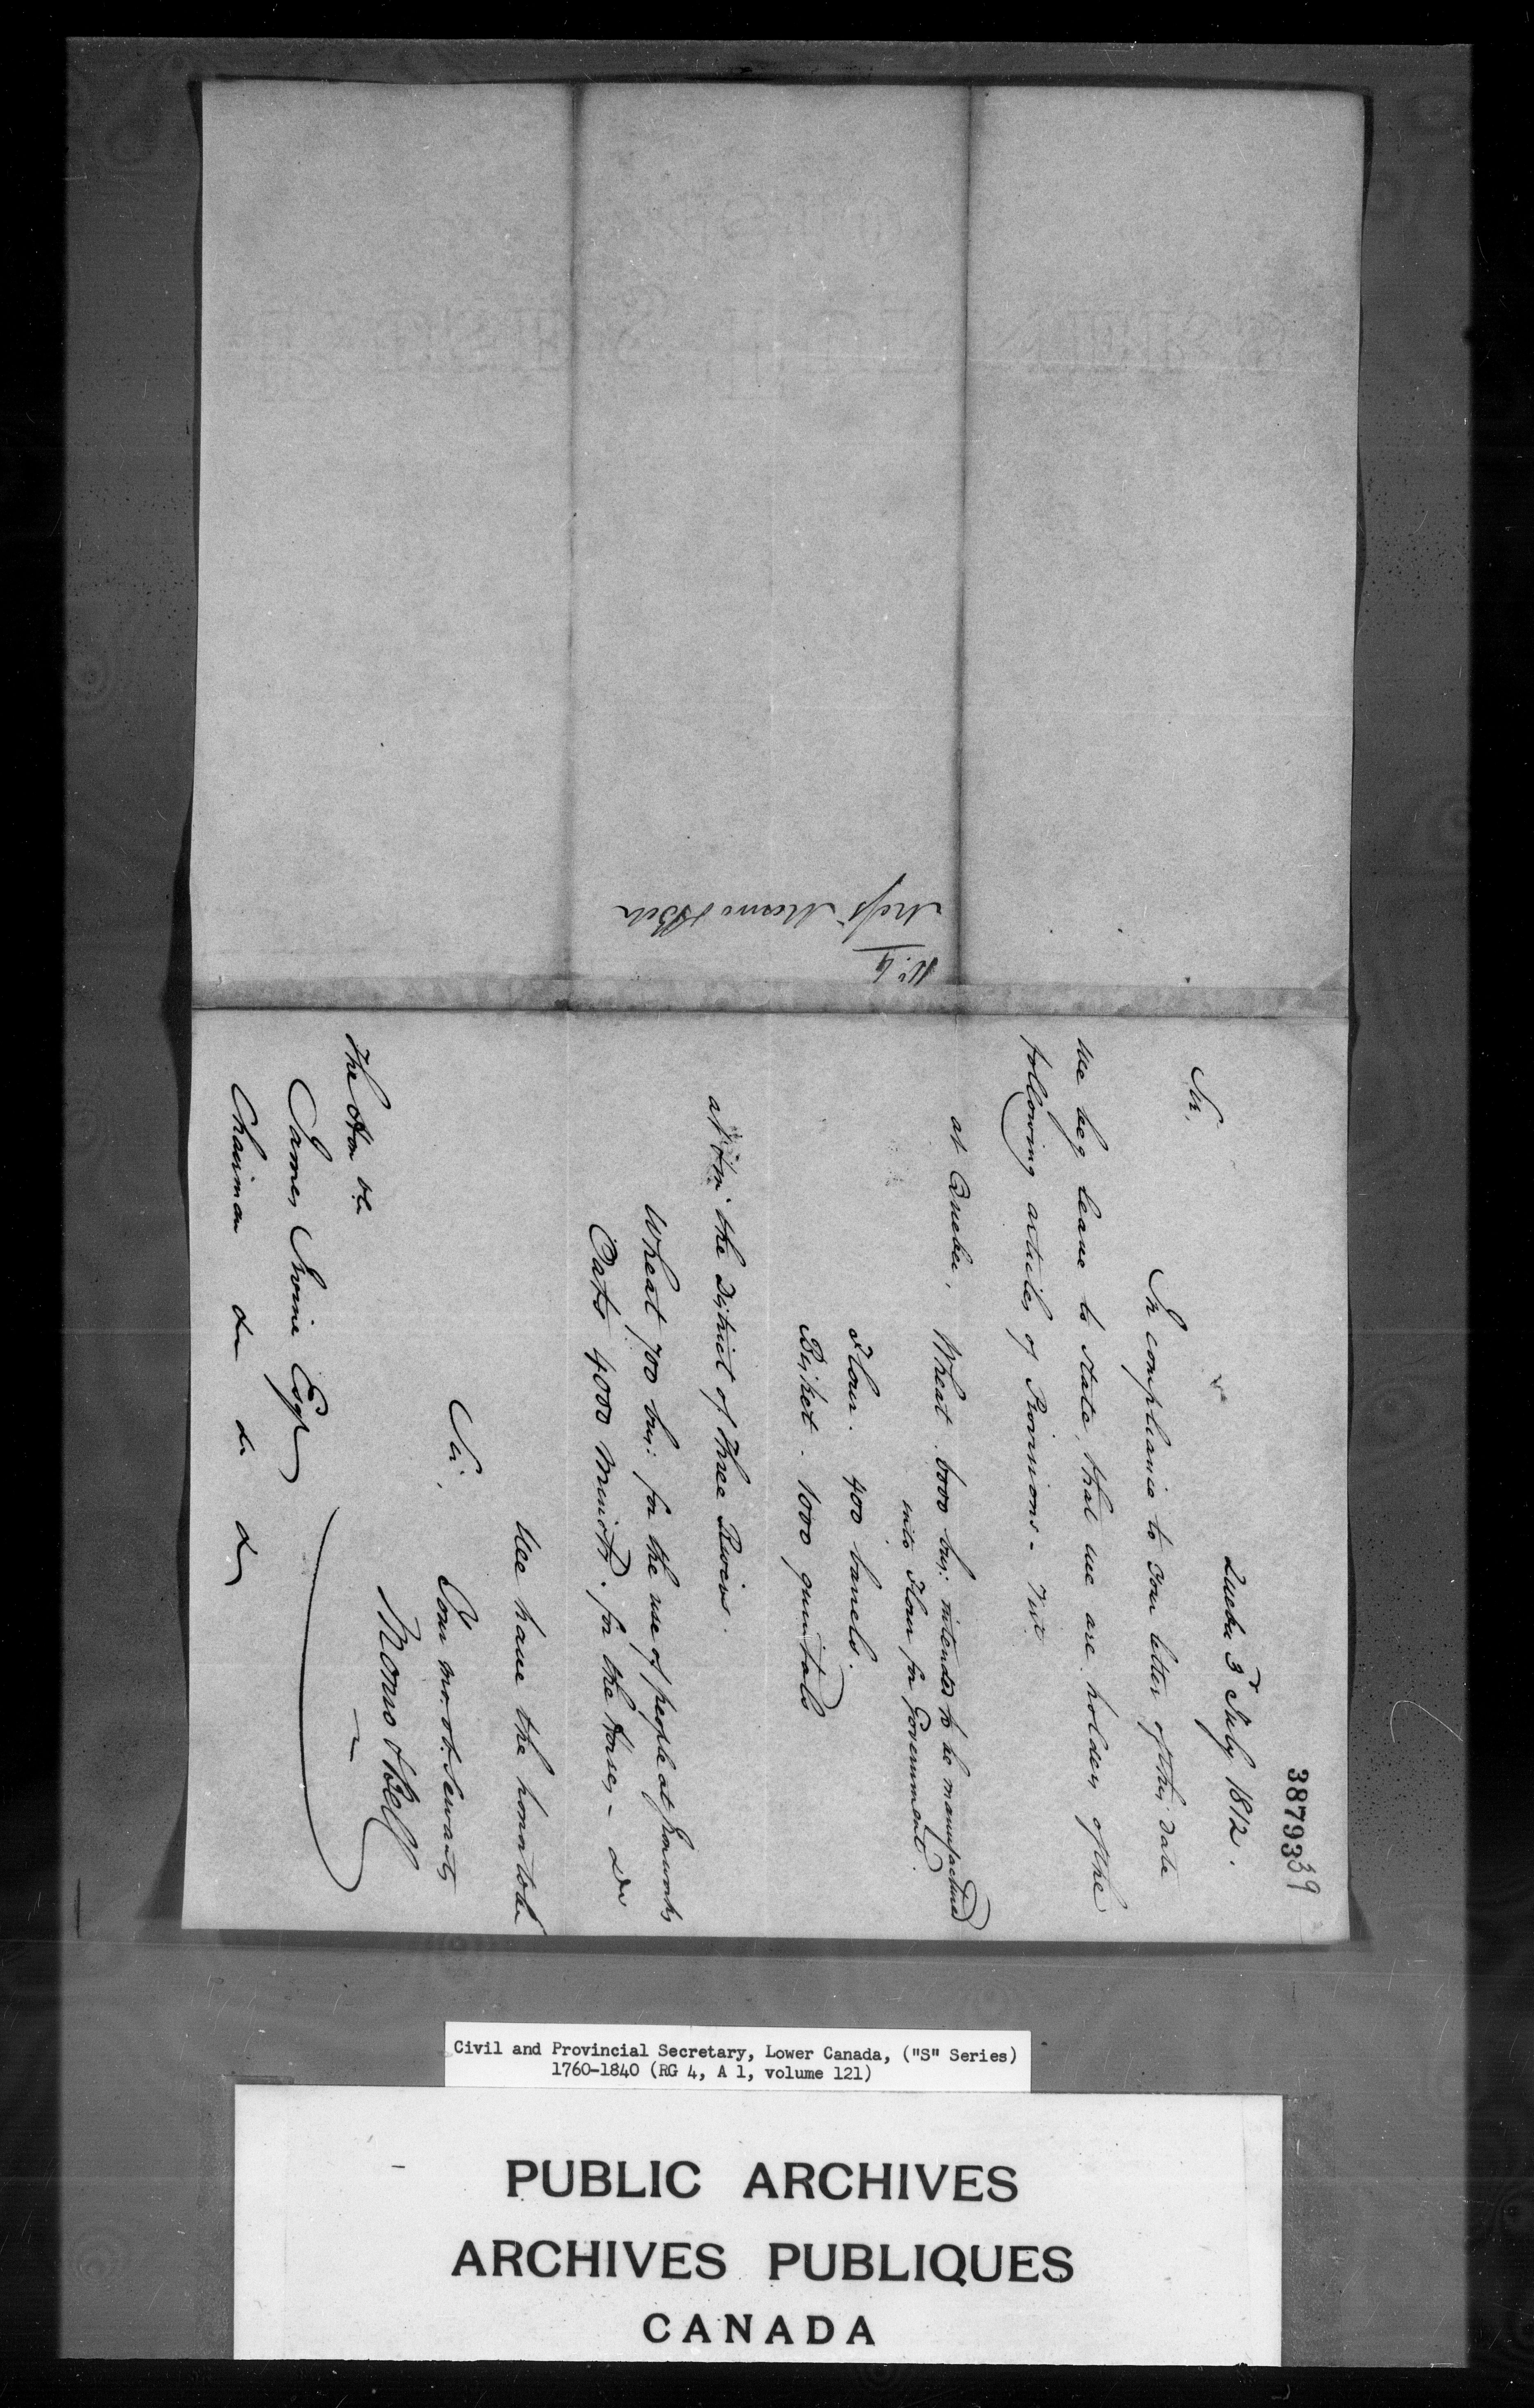 3879339
Quebec 3d July 1812.
Sir,
In compliance to your letter of this date
We beg leave to state, that we are holders of the
following articles of Provisions - Vizt
at Quebec, Wheat. 6000 bus: intended to be manufactured
into Flour for Government.
Flour. 400 barrels.
Bisket. 1000 quintals
at & in the District of Three Rivers.
Wheat 700 bus: for the use of people at Ironworks
Oats 4000 Minots. for the Horses - do
We have the honor to be
Sir,
Your mo. ob. Servants
Monro & Bell
The Hon ble
James Irvine Esqr
Chairman &c &c &c
No. 4
Messrs Monro & Bell
Civil and Provincial Secretary, Lower Canada, ("S" Series)
1760-1840 (RG 4, A 1, volume 121)
PUBLIC ARCHIVES
ARCHIVES PUBLIQUES
CANADA